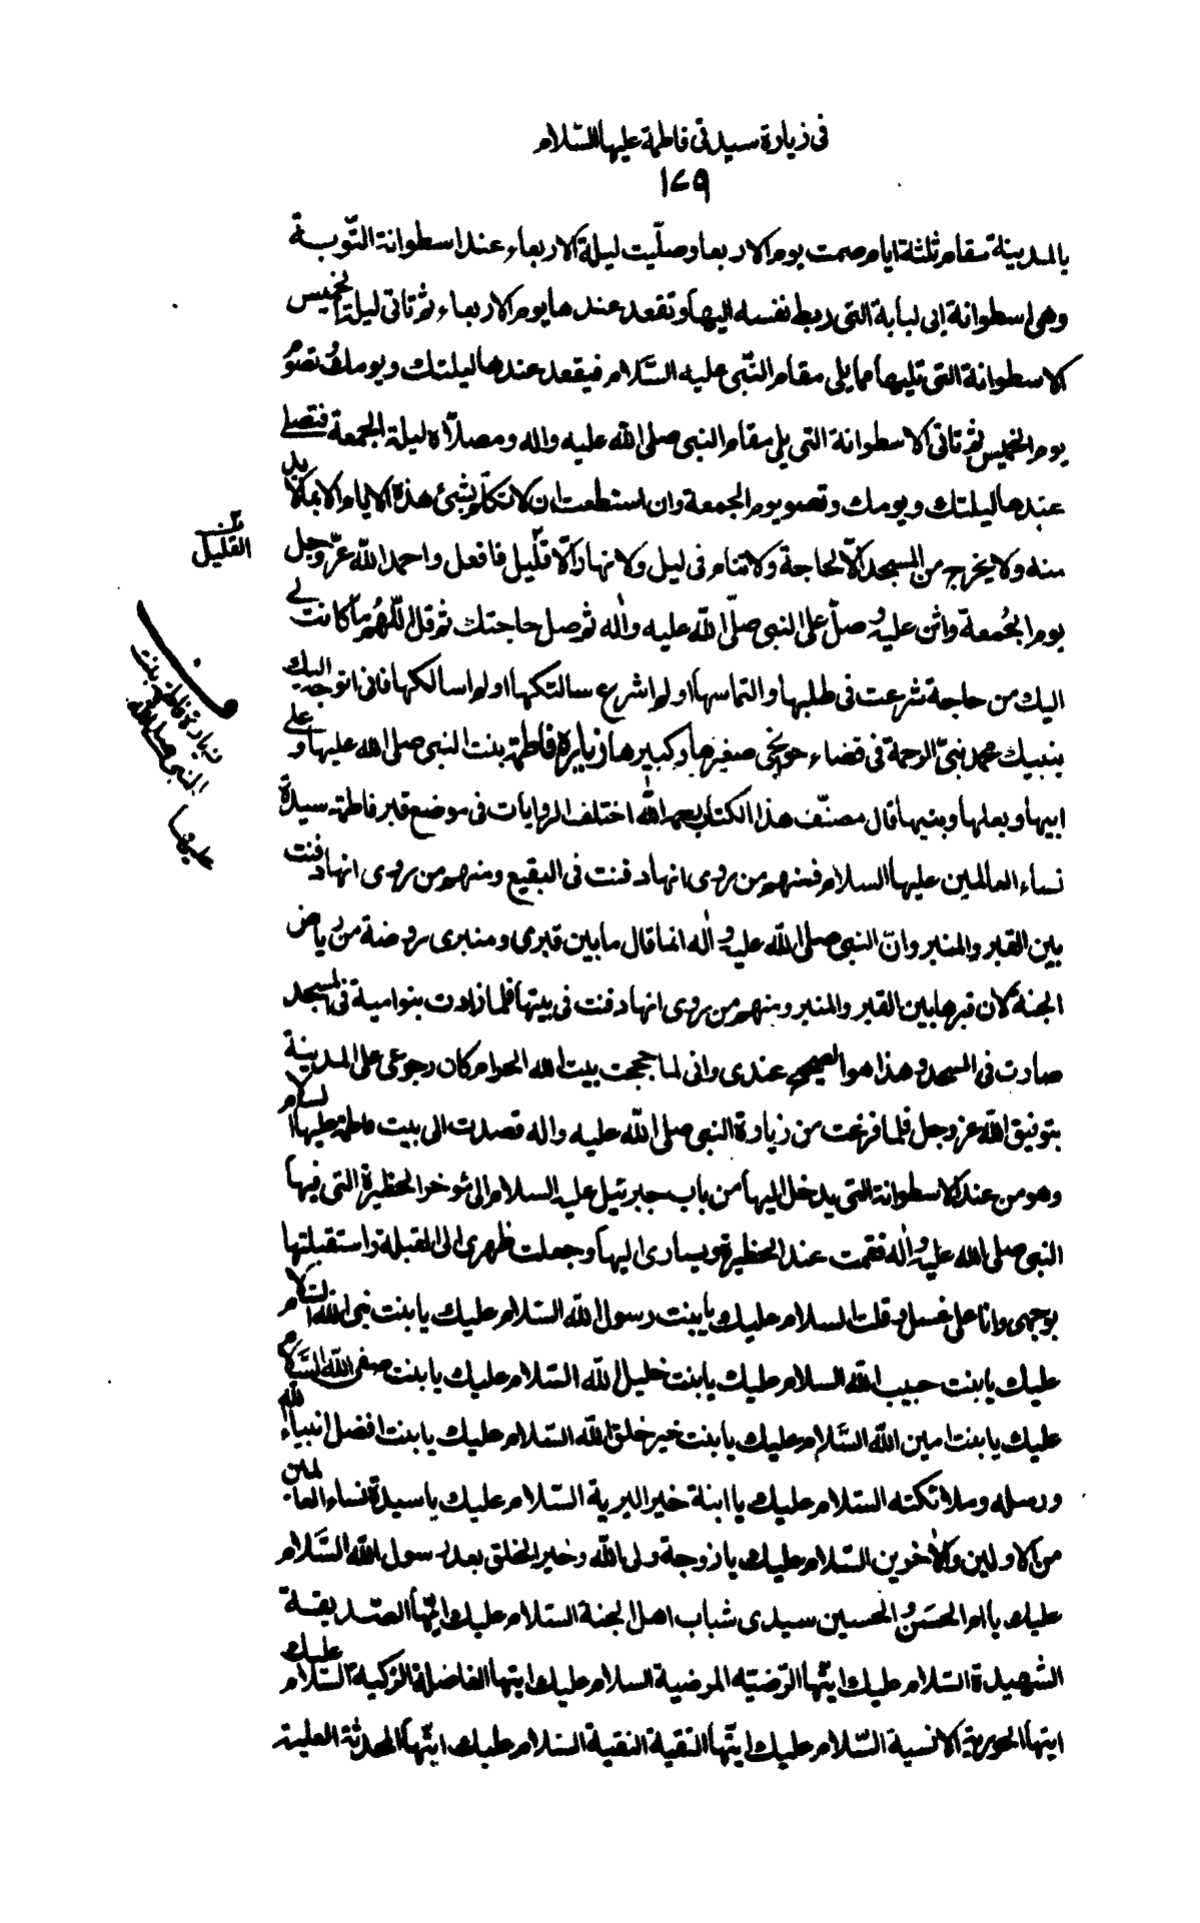 فى زيارة سيدتى فاطمة عليها السّلام
١٧٩
بالمدينة مقام ثلثة ايام صمت يوم الاربعا وصلّيت ليلة الاربعاء عند اسطوانة التّوبة
وهى اسطوانة ابى لبابة التى ربط نفسه اليها وتقعد عندها يوم الاربعاء ثم تاتى ليلة الخميس
الاسطوانة التى تليها مما يلى مقام النّبى عليه السّلام فيقعد عندها ليلتك ويومك وتصوم
يوم الخميس ثم تاتى الاسطوانة التى يلى مقام النبى صلى الله عليه واله ومصلّاه ليلة الجمعة فتصلى
عندها ليلتك ويومك وتصوم يوم الجمعة وان استطعت ان لا تكلّم بشئ هذه الايام الا بما لا بد
منه ولا يخرج من المسجد الّا لحاجة ولا تنام فى ليل ولا نهار الّا قليل فافعل واحمد اللّه عزّوجل
يوم الجُمعة واثن عليه وصلّ على النبى صلّى اللّه عليه واله ثم صل حاجتك ثم قل اللّهُم ما كانت لى
اليك من حاجة شرعت فى طلبها والتماسها او لم اشرع سالتكها او لم اسالكها فانى اتوجه اليك
بنبيك محمد نبىّ الرحمة فى قضاء حوايجى صغيرها وكبيرها زيارة فاطمة بنت النبى صلى الله عليها وعلى
ابيها وبعلها وبنيها قال مصنّف هذا الكتاب رحمه اللّه اختلف الروايات فى موضع قبر فاطمة سيدة
نساء العالمين عليها السلام فمنهم من روى انها دفنت فى البقيع ومنهم من روى انها دفنت
بين القبر والمنبر وانّ النبى صلى اللّه عليه واله انما قال ما بين قبرى ومنبرى روضة من رياض
الجنة لان قبرها بين القبر والمنبر ومنهم من روى انها دفنت فى بيتها فلما زادت بنو امية فى المسجد
صارت فى المسجد وهذا هو الصحيح عندى وانى لما حججت بيت الله الحرام كان رجوعى على المدينة
بتوفيق اللّه عز وجل فلما فرغت من زيارة النبى صلى اللّه عليه واله قصدت الى بيت فاطمة عليها السلام
وهو من عند الاسطوانة التى يدخل اليها من باب جبرئيل عليه السلام الى مؤخر الحظيرة التى فيها
النبى صلى الله عليه واله فقمت عند الحظيرة ويسارى اليها وجعلت ظهرى الى القبلة واستقبلتها
بوجهى وانا على غسل وقلت السلام عليك يا بنت رسول اللّه السّلام عليك يا بنت نبى اللّه السّلام
عليك يا بنت حبيب اللّه السلام عليك يا بنت خليل اللّه السّلام عليك يا بنت صفى اللّه السّلام
عليك يا بنت امين اللّه السَّلام عليك يا بنت خير خلق اللّه السّلام عليك يا بنت افضل انبياء اللّه
ورسله وملائكته السّلام عليك يا ابنة خير البرية السّلام عليك يا سيدة نساء العالمين
من الاولين والاخرين السّلام عليك يا زوجة ولى اللّه وخير الخلق بعد رسول اللّه السَّلام
عليك يا ام الحسَن والحسين سيدى شباب اهل الجنة السّلام عليك ايتها الصّديقة
الشهيدة السّلام عليك ايتّها الرّضيّة المرضية السلام عليك ايتها الفاضلة الزكية السّلام عليك
ايتها الحورية الانسية السّلام عليك ايتّها التقية النقية السّلام عليك ايتّها المحدثة العليمة
القليل
زيارة فاطمة بنت
النبى صلى الله
عليها